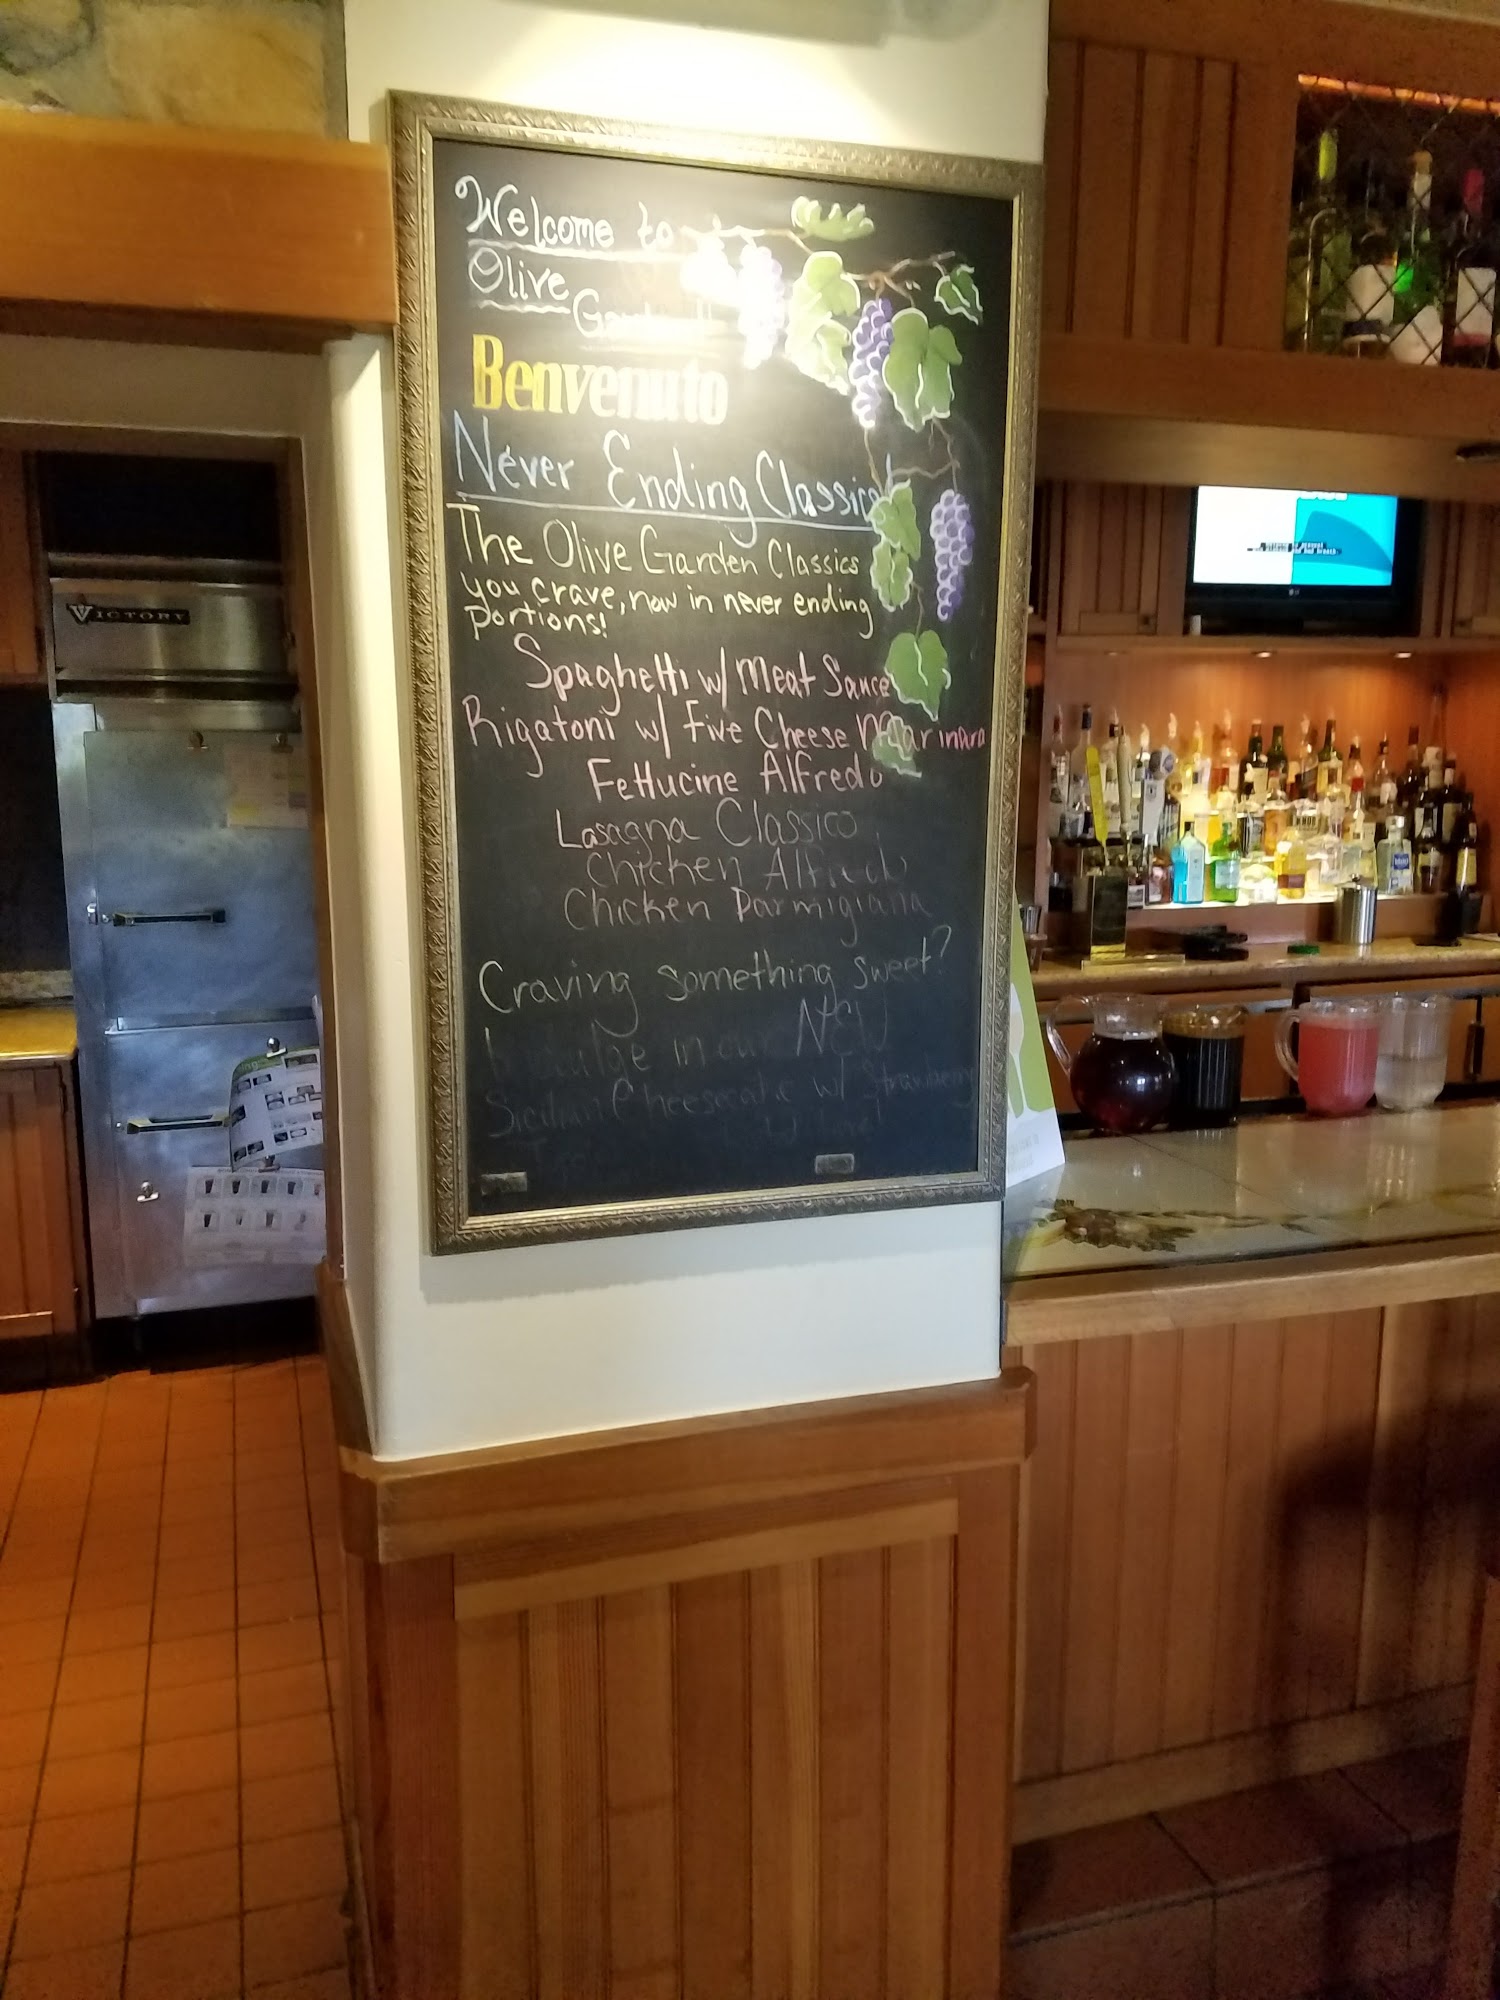 Welcome to
Olive
Benvenuto
Never Ending Classics!
The Olive Garden Classics
you crave, now in never ending
portions!
Spaghetti w/ Meat Sauce
Rigatoni w/ Five Cheese Marinara
Fettucine Alfredo
Lasagna Classico
Chicken Alfredo
Chicken Parmigiana
Craving something sweet?
Indulge in our NEW
Sicilian Cheesecake w/ Strawberry
VICTORY
LG